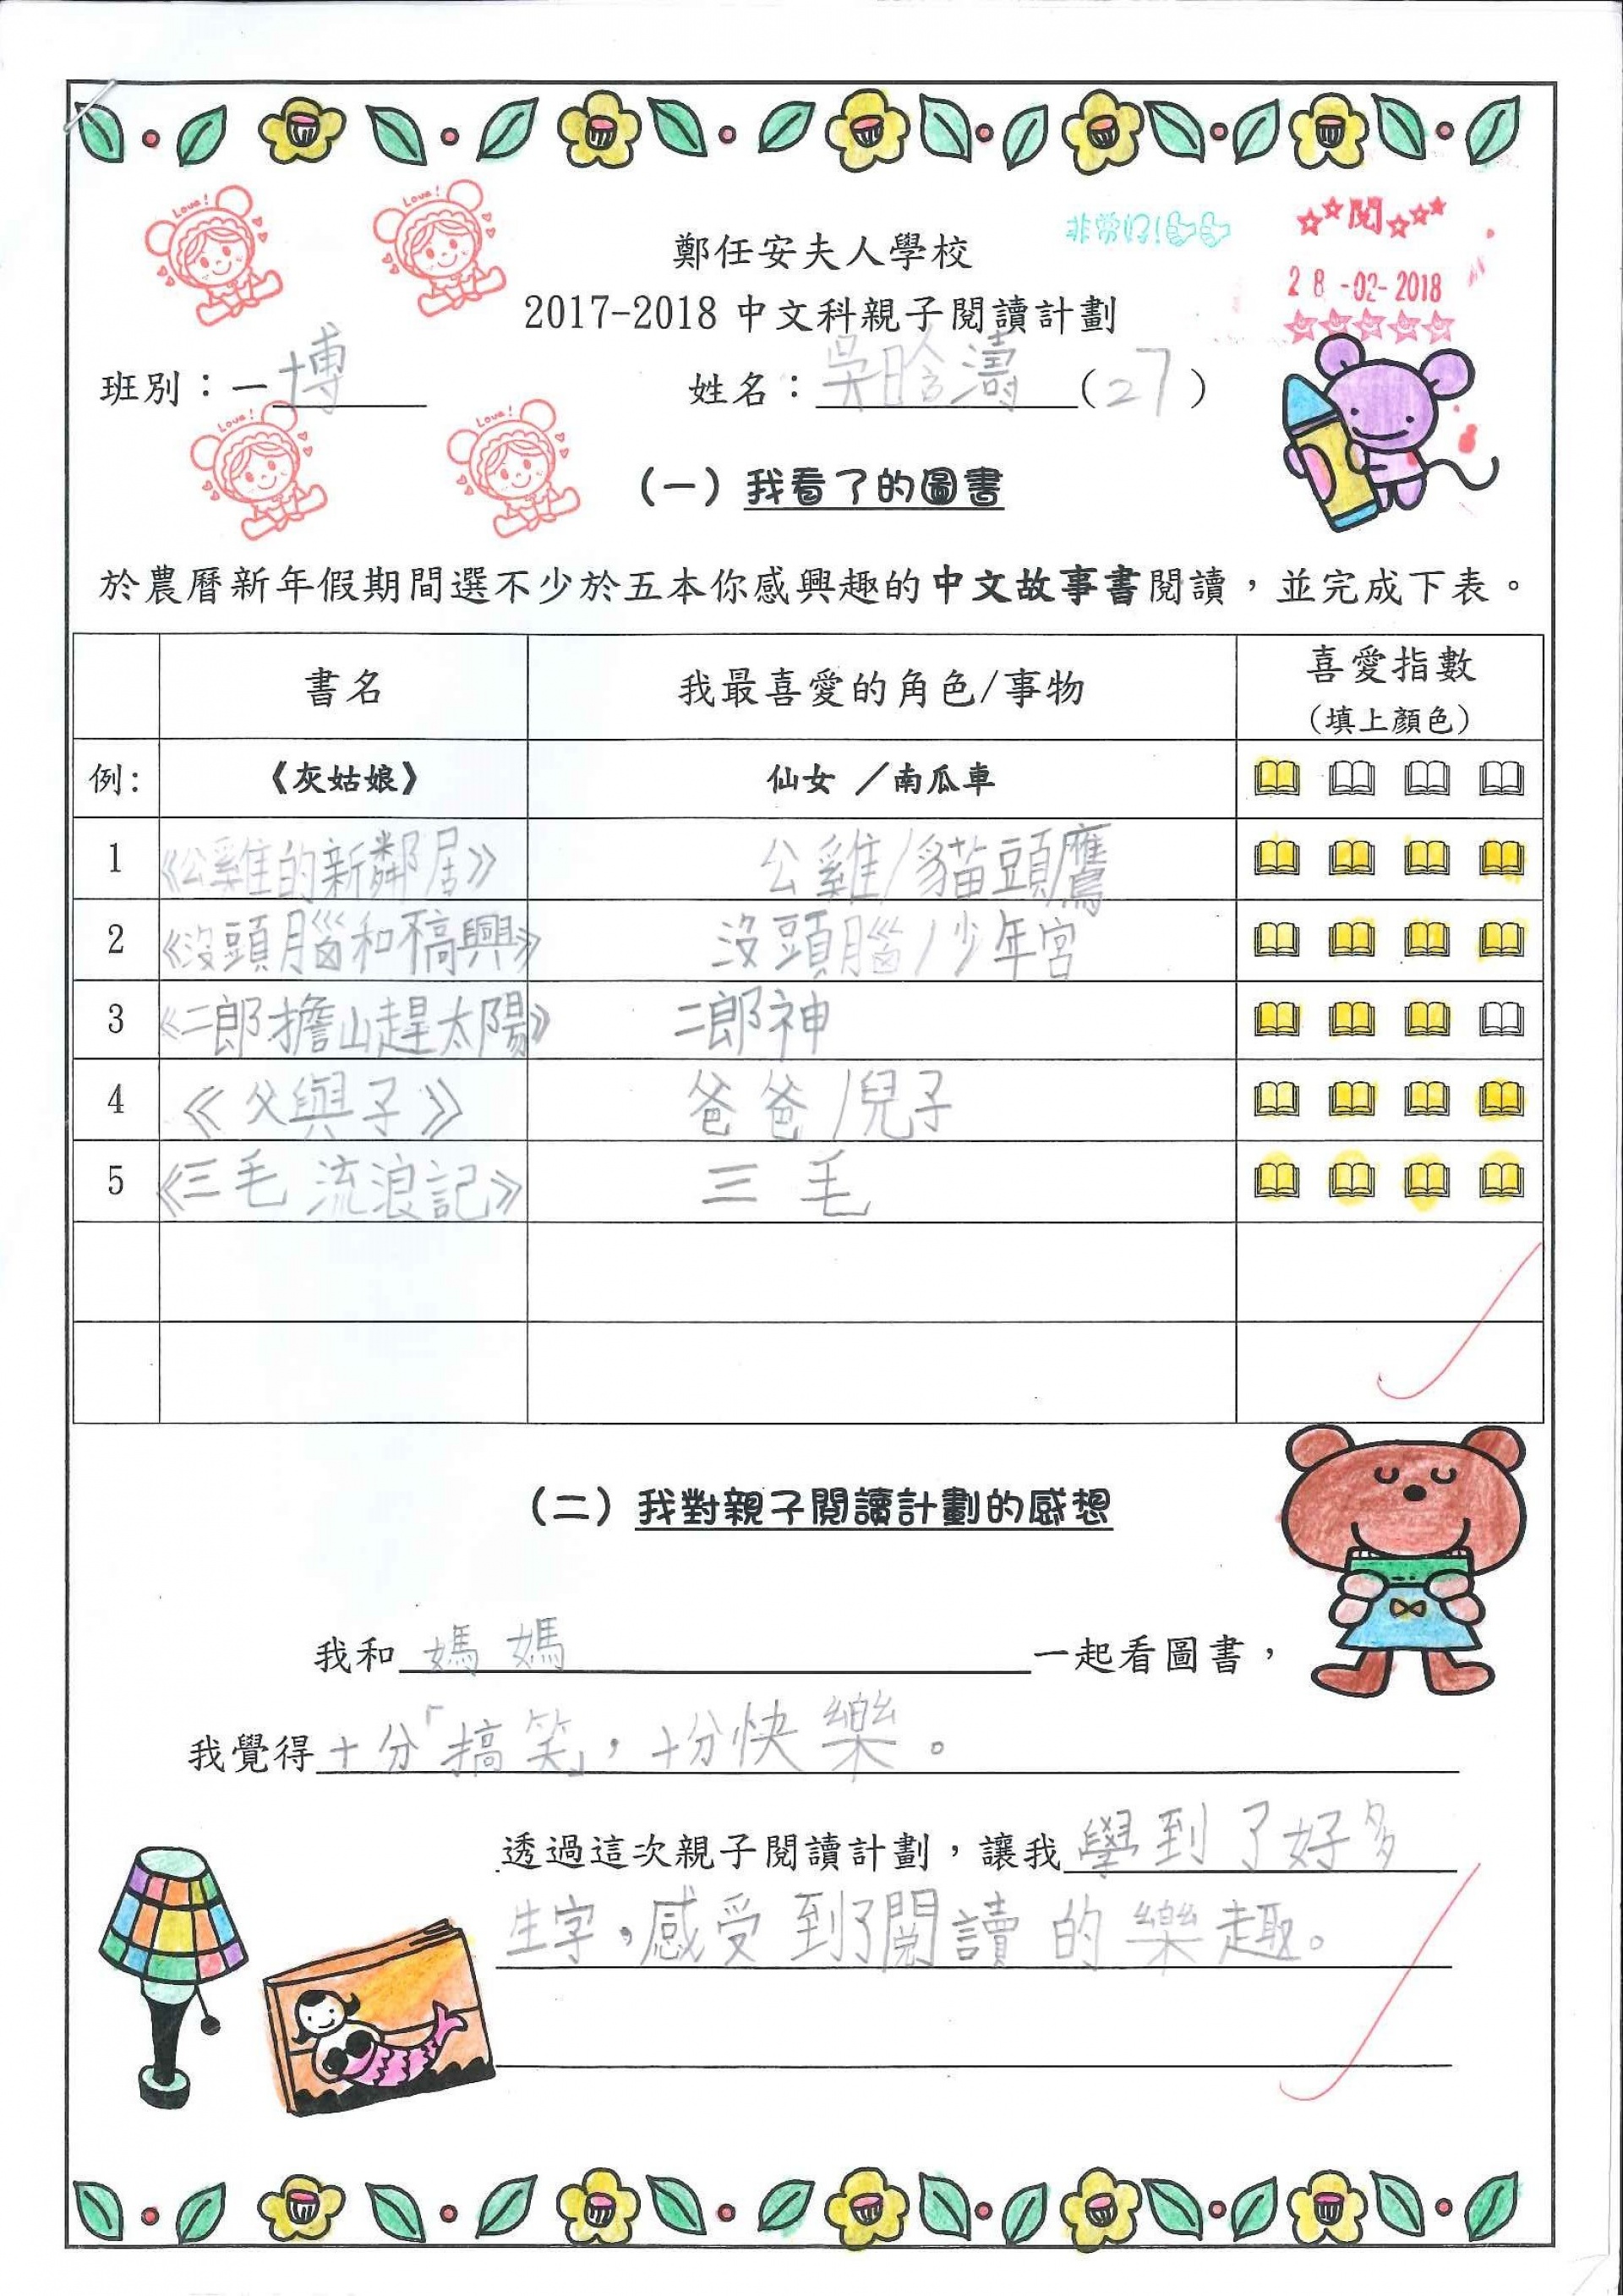 Love! Love!
非常好!
閱
28-02-2018
鄭任安夫人學校
2017-2018 中文科親子閱讀計劃
班別：一博 姓名：吳晗濤（27）
Love! Love!
（一）我看了的圖書
於農曆新年假期間選不少於五本你感興趣的中文故事書閱讀，並完成下表。
書名 我最喜愛的角色/事物 喜愛指數
(填上顏色)
例： 《灰姑娘》 仙女 ／南瓜車
1 《公雞的新鄰居》 公雞/貓頭鷹
2 《沒頭腦和不高興》 沒頭腦/少年宮
3 《二郎擔山趕太陽》 二郎神
4 《父與子》 爸爸/兒子
5 《三毛流浪記》 三毛
（二）我對親子閱讀計劃的感想
我和媽媽一起看圖書，
我覺得十分「搞笑」，十分快樂。
透過這次親子閱讀計劃，讓我學到了好多
生字，感受到了閱讀的樂趣。